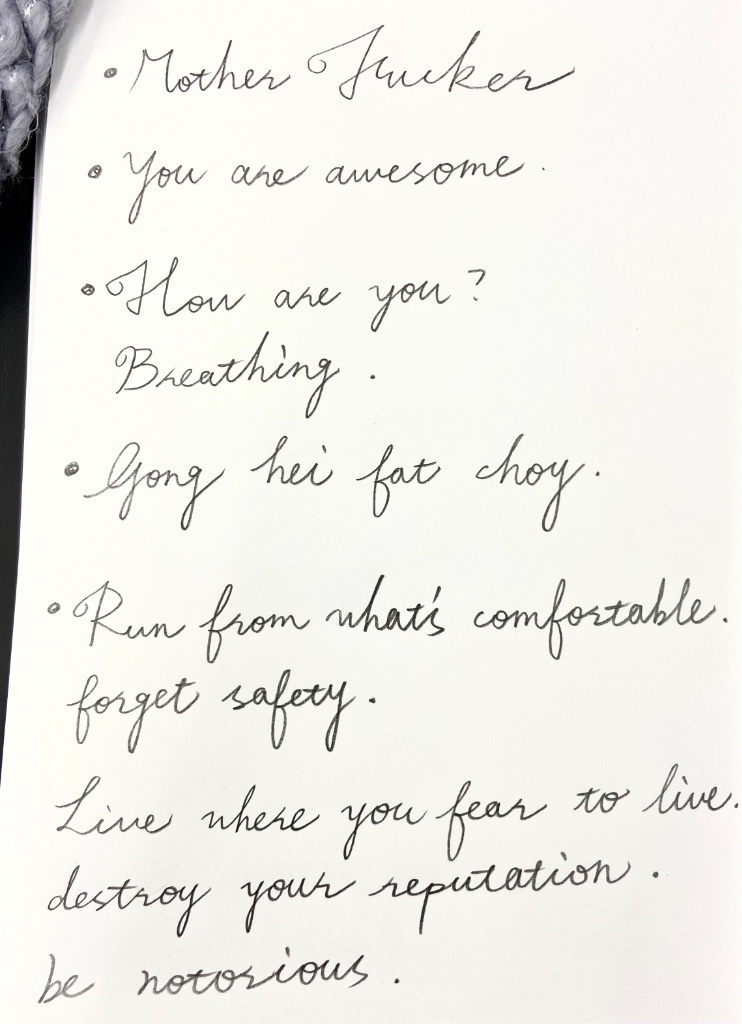 • Mother Fucker
• You are awesome.
• How are you?
Breathing.
• Gong hei fat choy.
• Run from what's comfortable.
forget safety.
Live where you fear to live.
destroy your reputation.
be notorious.